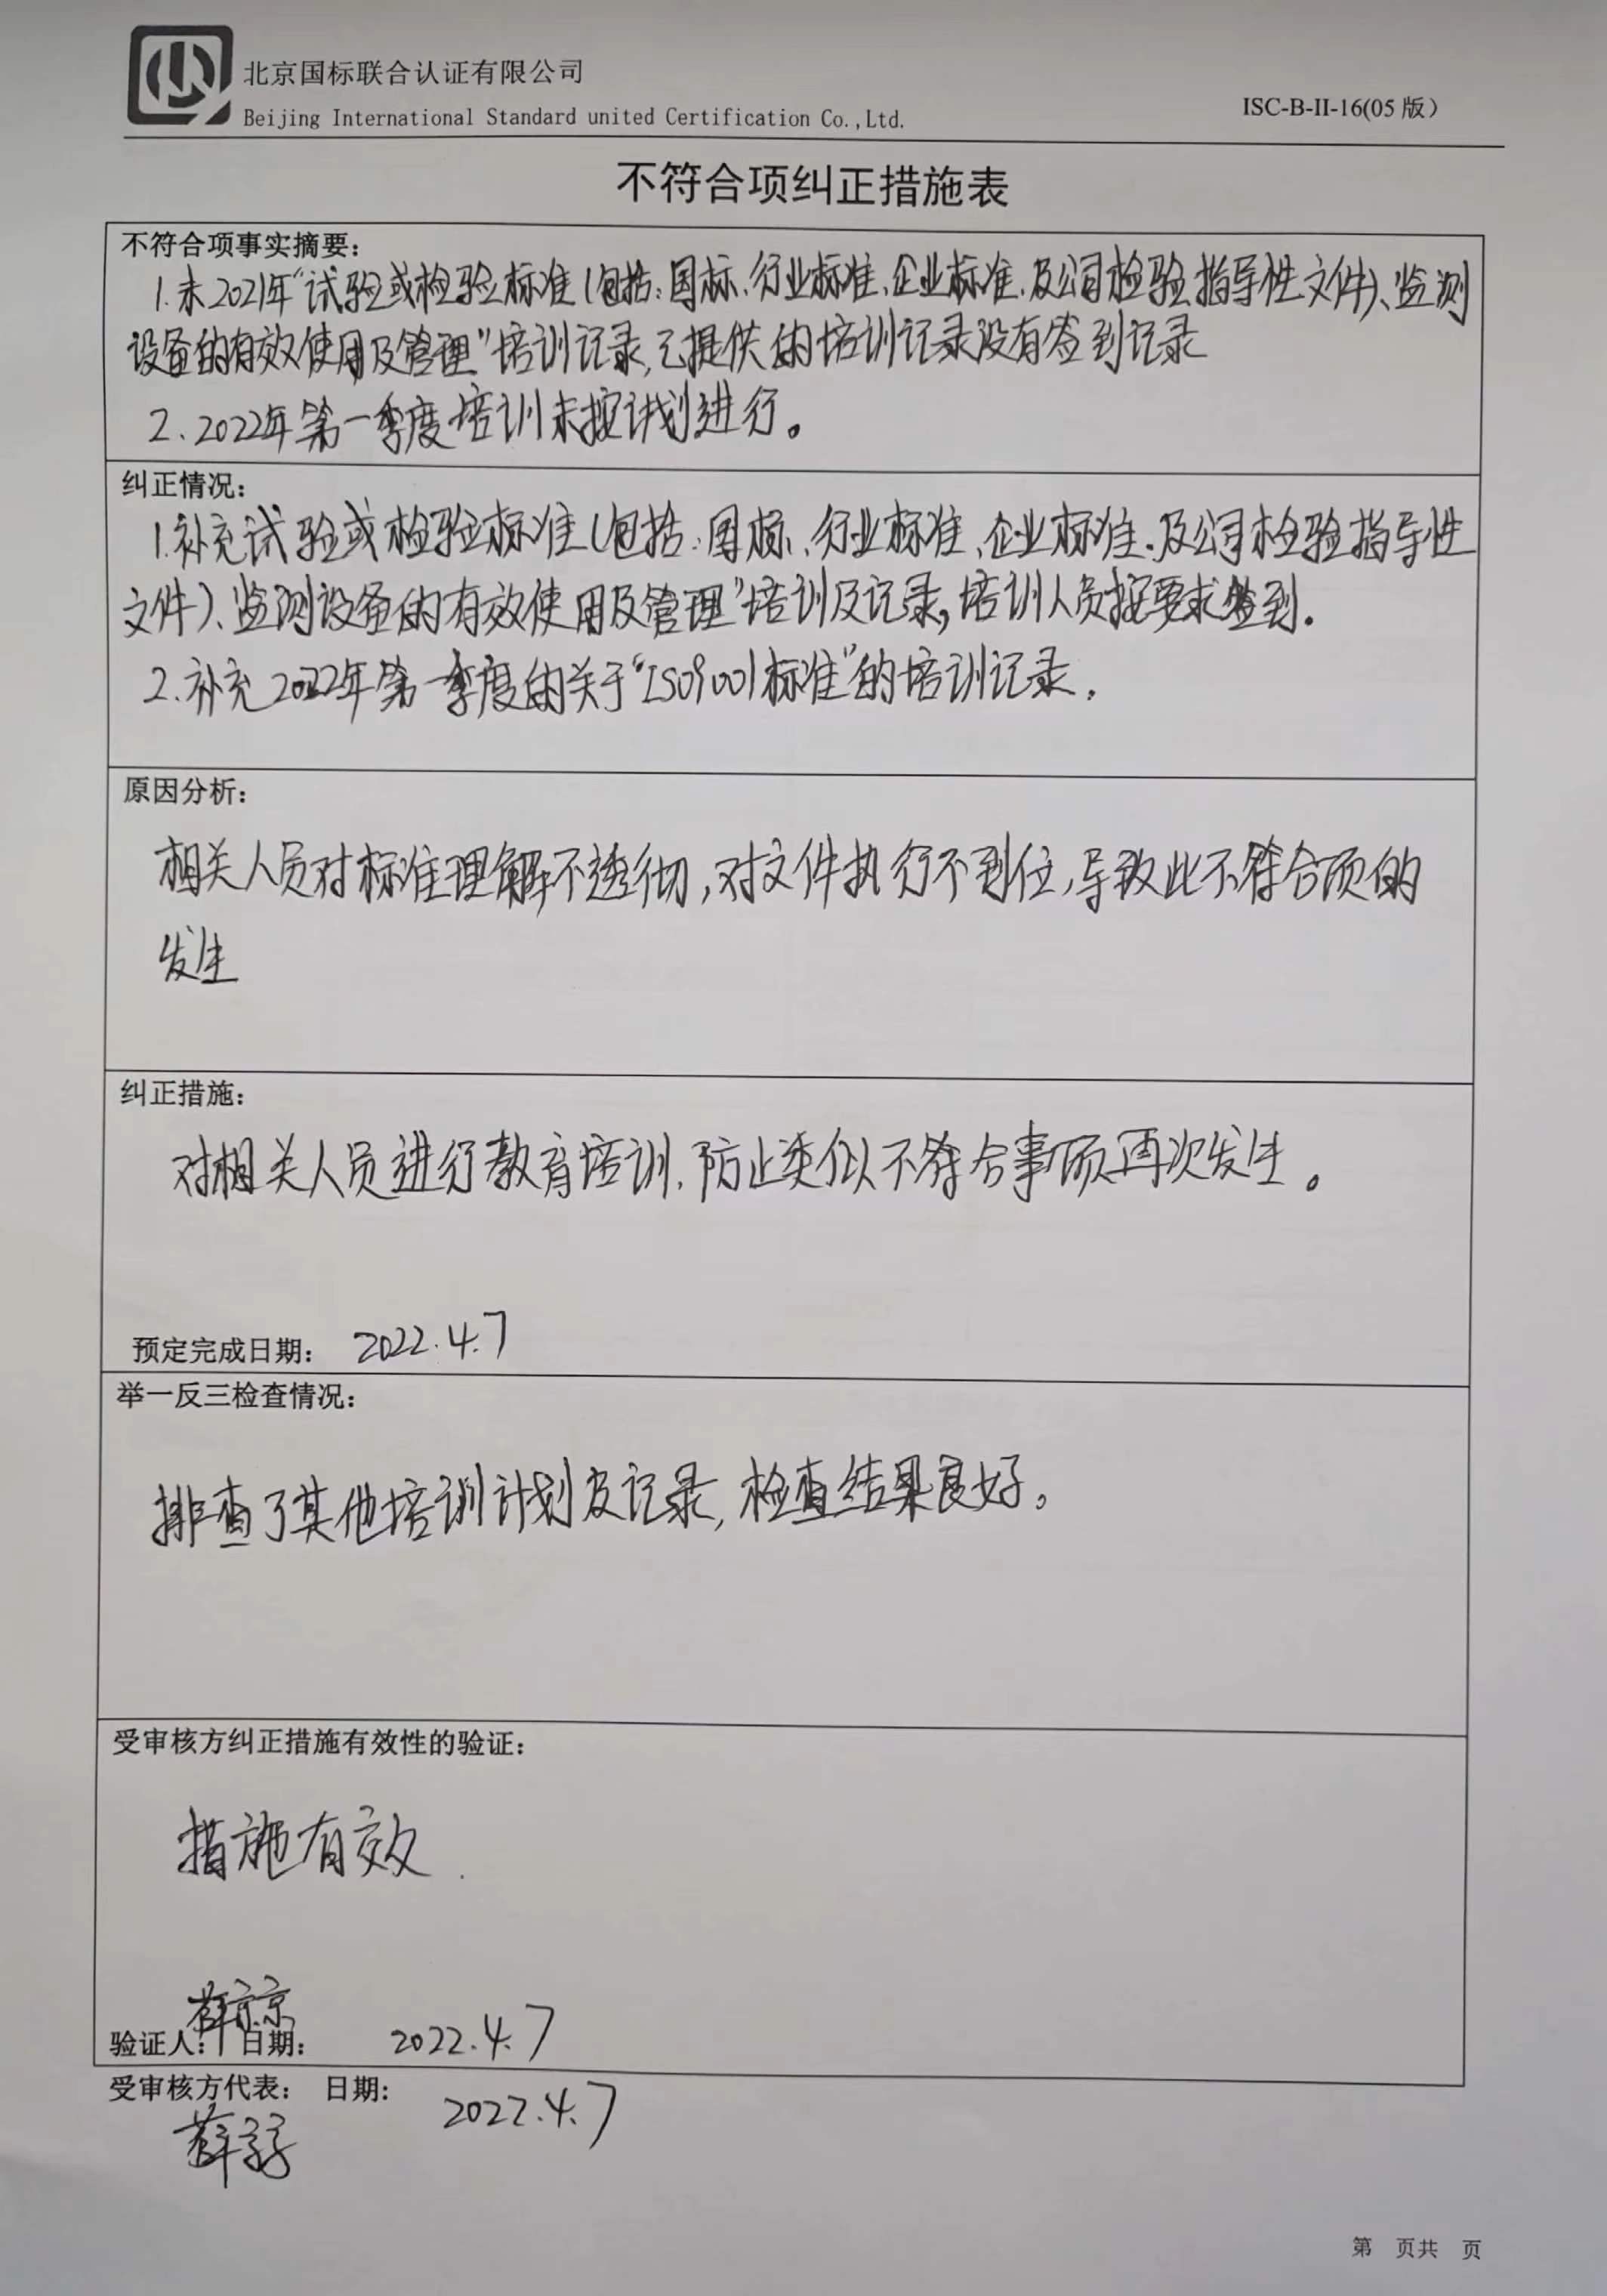 北京国标联合认证有限公司
Beijing International Standard united Certification Co.,Ltd.
ISC-B-II-16(05 版）
不符合项纠正措施表
不符合项事实摘要：
1.未2021年“试验或检验标准（包括：国标、行业标准、企业标准、及公司检验指导性文件）、监测
设备的有效使用及管理”培训记录，已提供的培训记录没有签到记录
2、2022年第一季度培训未按计划进行。
纠正情况：
1.补充试验或检验标准（包括：国标、行业标准、企业标准、及公司检验指导性
文件）、监测设备的有效使用及管理”培训及记录，培训人员按要求签到.
2.补充2022年第一季度的关于“ISO9001标准”的培训记录.
原因分析：
相关人员对标准理解不透彻，对文件执行不到位，导致此不符合项的
发生
纠正措施：
对相关人员进行教育培训，防止类似不符合事项再次发生。
预定完成日期： 2022.4.7
举一反三检查情况：
排查了其他培训计划及记录，检查结果良好。
受审核方纠正措施有效性的验证：
措施有效.
验证人： 日期： 2022.4.7
受审核方代表： 日期： 2022.4.7
第 页共 页